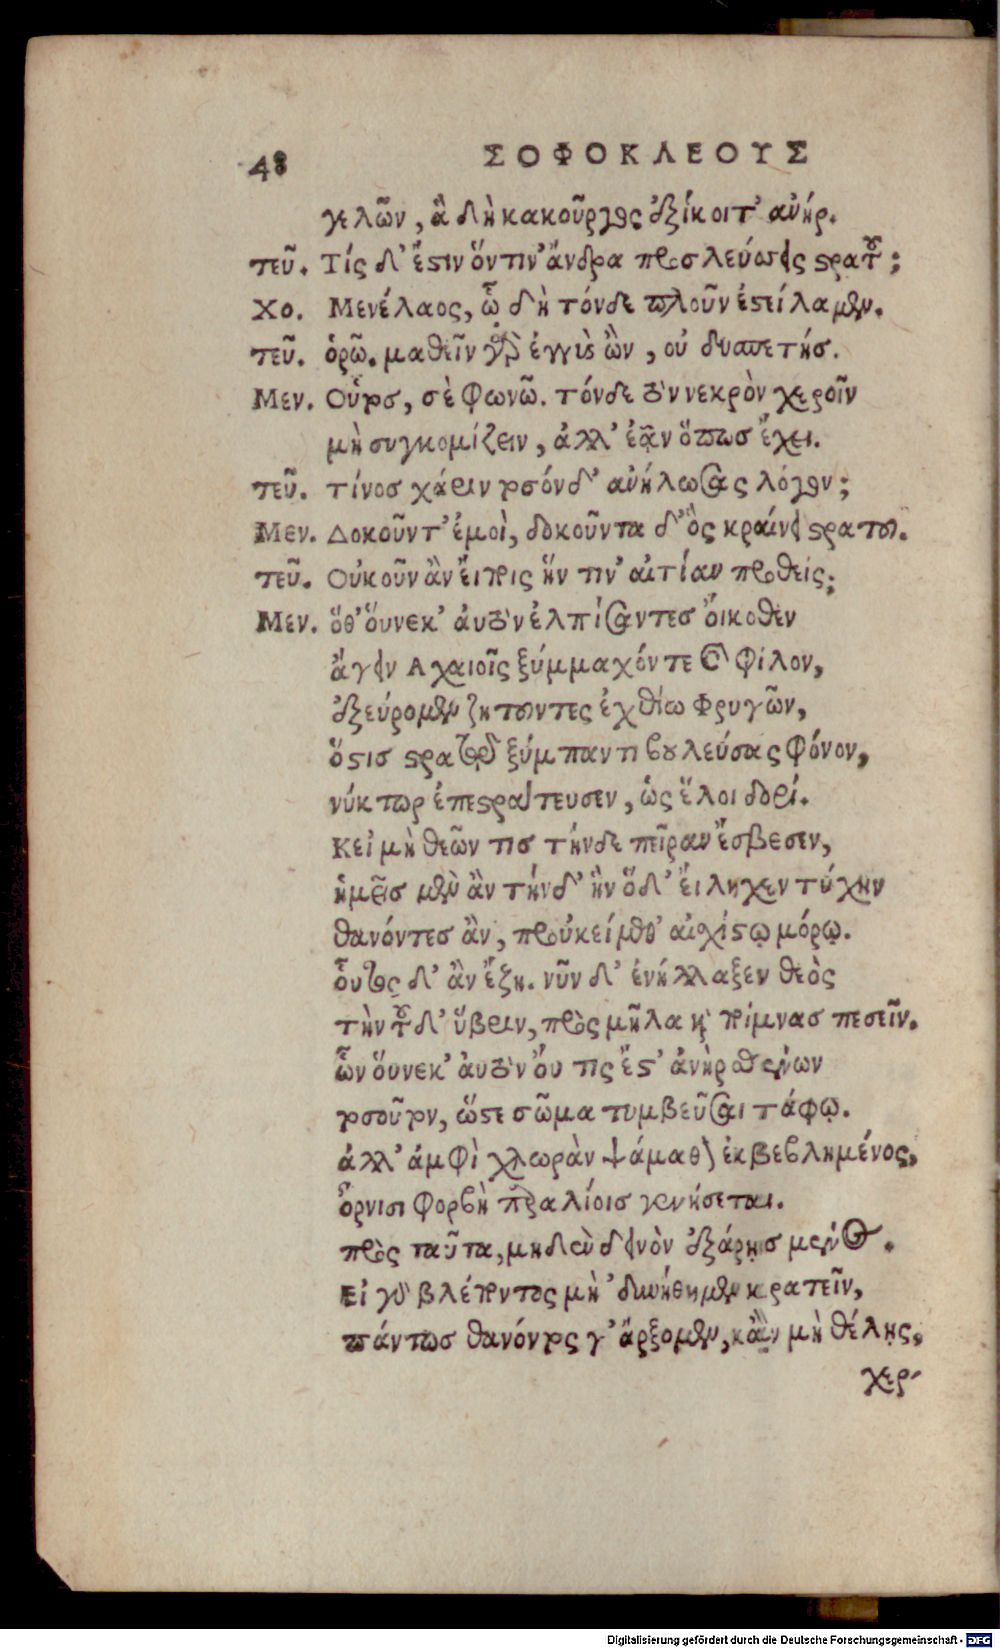 48 ΣΟΦΟΚΛΕΟΥΣ
γελῶν, ἃ δὴ κακοῦργος ἐξίκοιτ' ἀνήρ.
τεῦ. Τίς δ' ἔστιν ὅντιν' ἄνδρα προσλεύσσεις στρατοῦ;
Χο. Μενέλαος, ᾧ δὴ τόνδε πλοῦν ἐστείλαμεν.
τεῦ. ὁρῶ. μαθεῖν γὰρ ἐγγὺς ὢν, οὐ δυσπετής.
Μεν. Οὗτος, σὲ φωνῶ. τόνδε τὸν νεκρὸν χεροῖν
μὴ συγκομίζειν, ἀλλ' ἐᾷν ὅπως ἔχει.
τεῦ. τίνος χάριν τοσόνδ' ἀνήλωσας λόγον;
Μεν. Δοκοῦντ' ἐμοὶ, δοκοῦντα δ' ὃς κραίνει στρατοῦ.
τεῦ. Οὐκοῦν ἂν εἴποις ἥν τιν' αἰτίαν προθείς;
Μεν. ὅθ' ὅυνεκ' ἀυτὸν ἐλπίσαντες ὄικοθεν
ἄγειν Αχαιοῖς ξύμμαχόν τε καὶ φίλον,
ἐξεύρομεν ζητοῦντες ἐχθίω Φρυγῶν,
ὅστις στρατῷ ξύμπαντι βουλεύσας φόνον,
νύκτωρ ἐπεστράτευσεν, ὡς ἕλοι δορί.
Κεἰ μὴ θεῶν τις τήνδε πεῖραν ἔσβεσεν,
ἡμεῖς μὲν ἂν τήνδ' ἣν ὅδ' ἔιληχεν τύχην
θανόντες ἂν, προὐκείμεθ' αἰχίστῳ μόρῳ.
οὗτος δ' ἂν ἔζη. νῦν δ' ἐνήλλαξεν θεὸς
τὴν τοῦδ' ὕβριν, πρὸς μῆλα καὶ ποίμνας πεσεῖν.
ὧν ὅυνεκ' ἀυτὸν ὄυ τις ἔστ' ἀνὴρ σθένων
τοσοῦτον, ὥστε σῶμα τυμβεῦσαι τάφῳ.
ἀλλ' ἀμφὶ χλωρὰν ψάμαθον ἐκβεβλημένος,
ὄρνισι φορβὴ παραλίοις γενήσεται.
πρὸς ταῦτα, μηδὲν δεινὸν ἐξάρῃς μένος.
Εἰ γὰρ βλέποντος μὴ 'δυνήθημεν κρατεῖν,
πάντως θανόντος γ' ἄρξομεν, κἂν μὴ θέλῃς,
χερ-
Digitalisierung gefördert durch die Deutsche Forschungsgemeinschaft - DFG